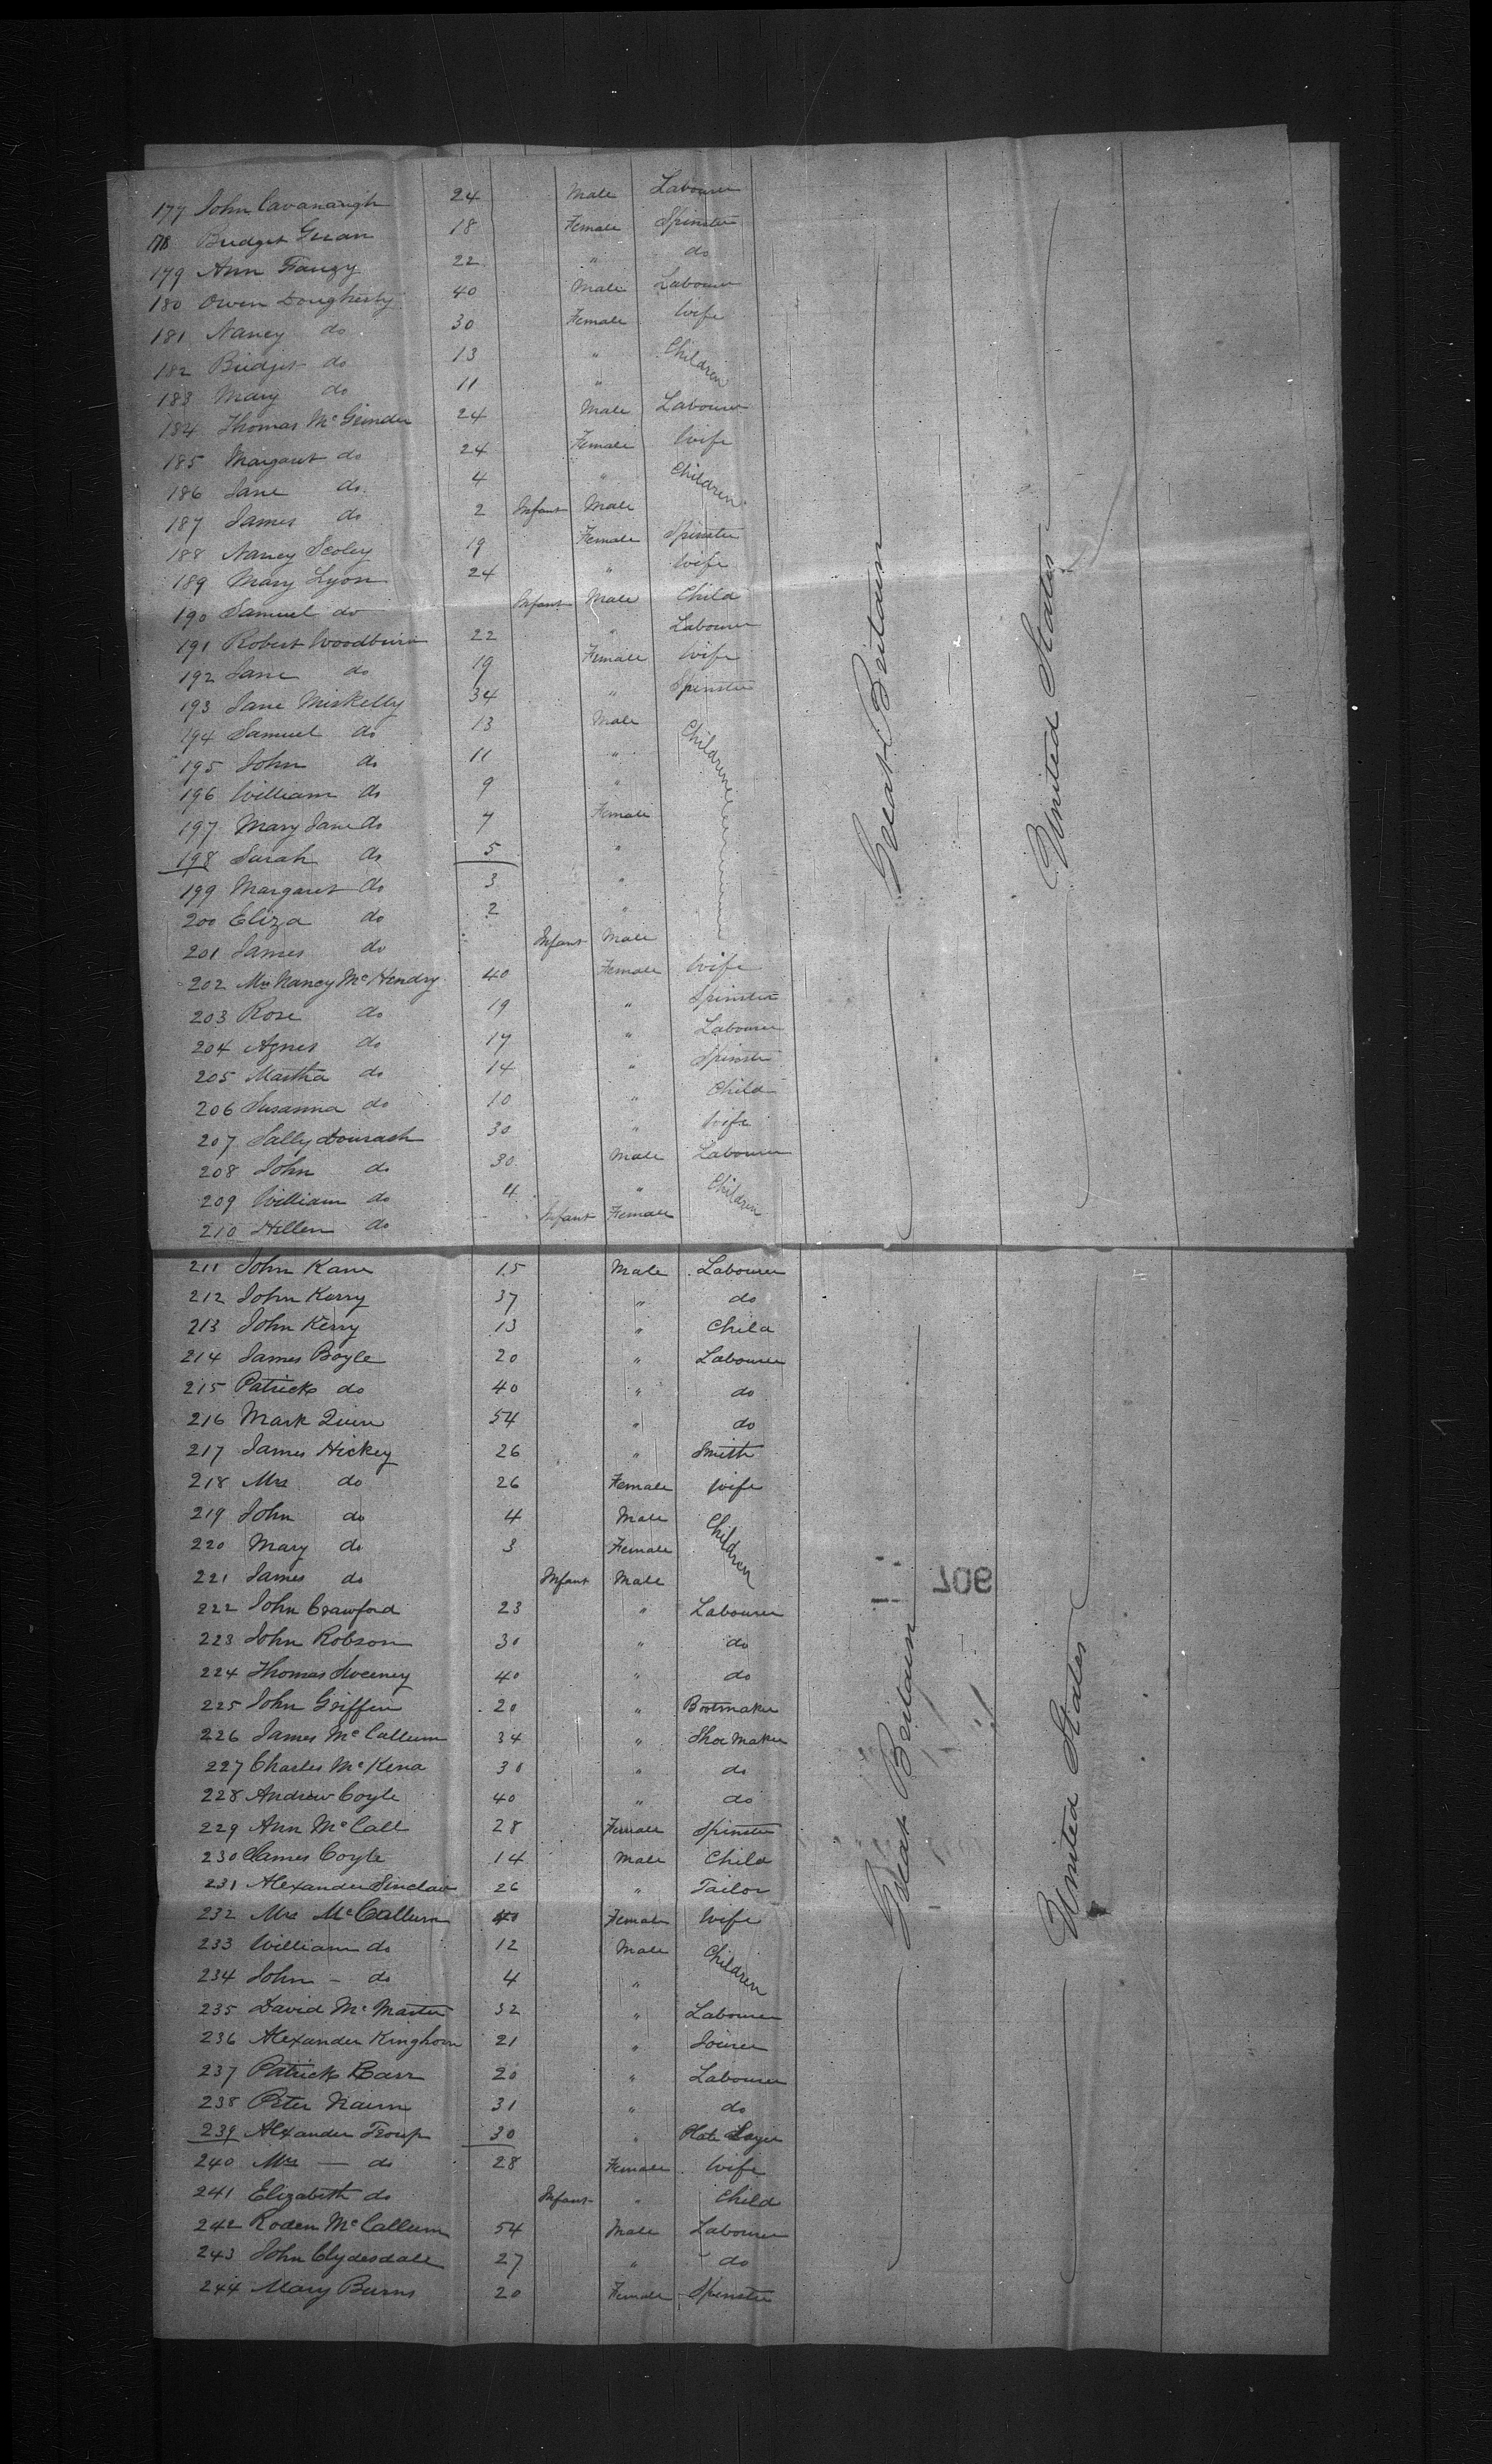 177 John Cavanaugh 24 Male Labourer
178 Bridget 18 Female Spinster
179 Ann 22 " do
180 Owen Dougherty 40 Male Labourer
181 Nancy do 30 Female Wife
182 Bridget do 13 " Children
183 Mary do 11 "
184 Thomas 24 Male Labourer
185 Margaret do 24 Female Wife
186 Jane do 4 " Children
187 James do 2 Infant Male
188 Nancy Scoley 19 Female Spinster
189 Mary Lyon 24 " Wife
190 Samuel do Infant Male Child
191 Robert Woodburn 22 " Labourer
192 Jane do 19 Female Wife
193 Jane Miskelly 34 " Spinster
194 Samuel do 13 Male Children
195 John do 11 "
196 William do 9 "
197 Mary Jane do 7 Female
198 Sarah do 5 "
199 Margaret do 3 "
200 Eliza do 2 "
201 James do Infant Male
202 Mrs Nancy McHendry 40 Female Wife
203 Rose do 19 " Spinster
204 Agnes do 17 " Labourer
205 Martha do 14 " Spinster
206 Susanna do 10 " Child
207 Sally 30 " Wife
208 John do 30 Male Labourer
209 William do 4 " Children
210 Hellen do Infant Female
Great Britain
United States
211 John Kane 15 Male Labourer
212 John Kerry 37 " do
213 John Kerry 13 " Child
214 James Boyle 20 " Labourer
215 Patrick do 40 " do
216 Mark Quinn 54 " do
217 James Hickey 26 " Smith
218 Mrs do 26 Female Wife
219 John do 4 Male Children
220 Mary do 3 Female
221 James do Infant Male
222 John Crawford 23 " Labourer
223 John Robson 30 " do
224 Thomas Sweeney 40 " do
225 John Griffin 20 " Bootmaker
226 James McCallum 34 " Shoe Maker
227 Charles McKena 30 " do
228 Andrew Coyle 40 " do
229 Ann McCall 28 Female Spinster
230 James Coyle 14 Male Child
231 Alexander Sinclair 26 " Tailor
232 Mrs McCallum 40 Female Wife
233 William do 12 Male Children
234 John - do 4 "
235 David McMaster 32 " Labourer
236 Alexander Kinghorn 21 " Joiner
237 Patrick Barr 20 " Labourer
238 Peter Nairn 31 " do
239 Alexander Troup 30 " Plate Layer
240 Mrs — do 28 Female Wife
241 Elizabeth do Infant " Child
242 Roden McCallum 54 Male Labourer
243 John Clydesdale 27 " do
244 Mary Burns 20 Female Spinster
Great Britain
United States